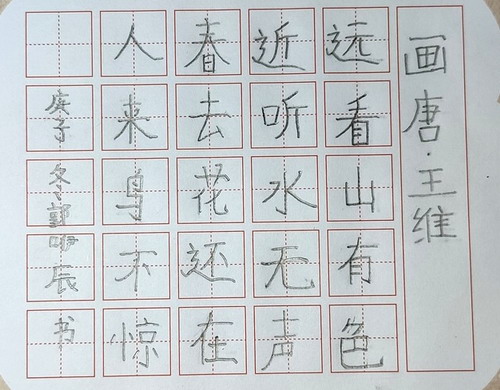 画唐·王维
远看山有色
近听水无声
春去花还在
人来鸟不惊
庚子冬郭辰书